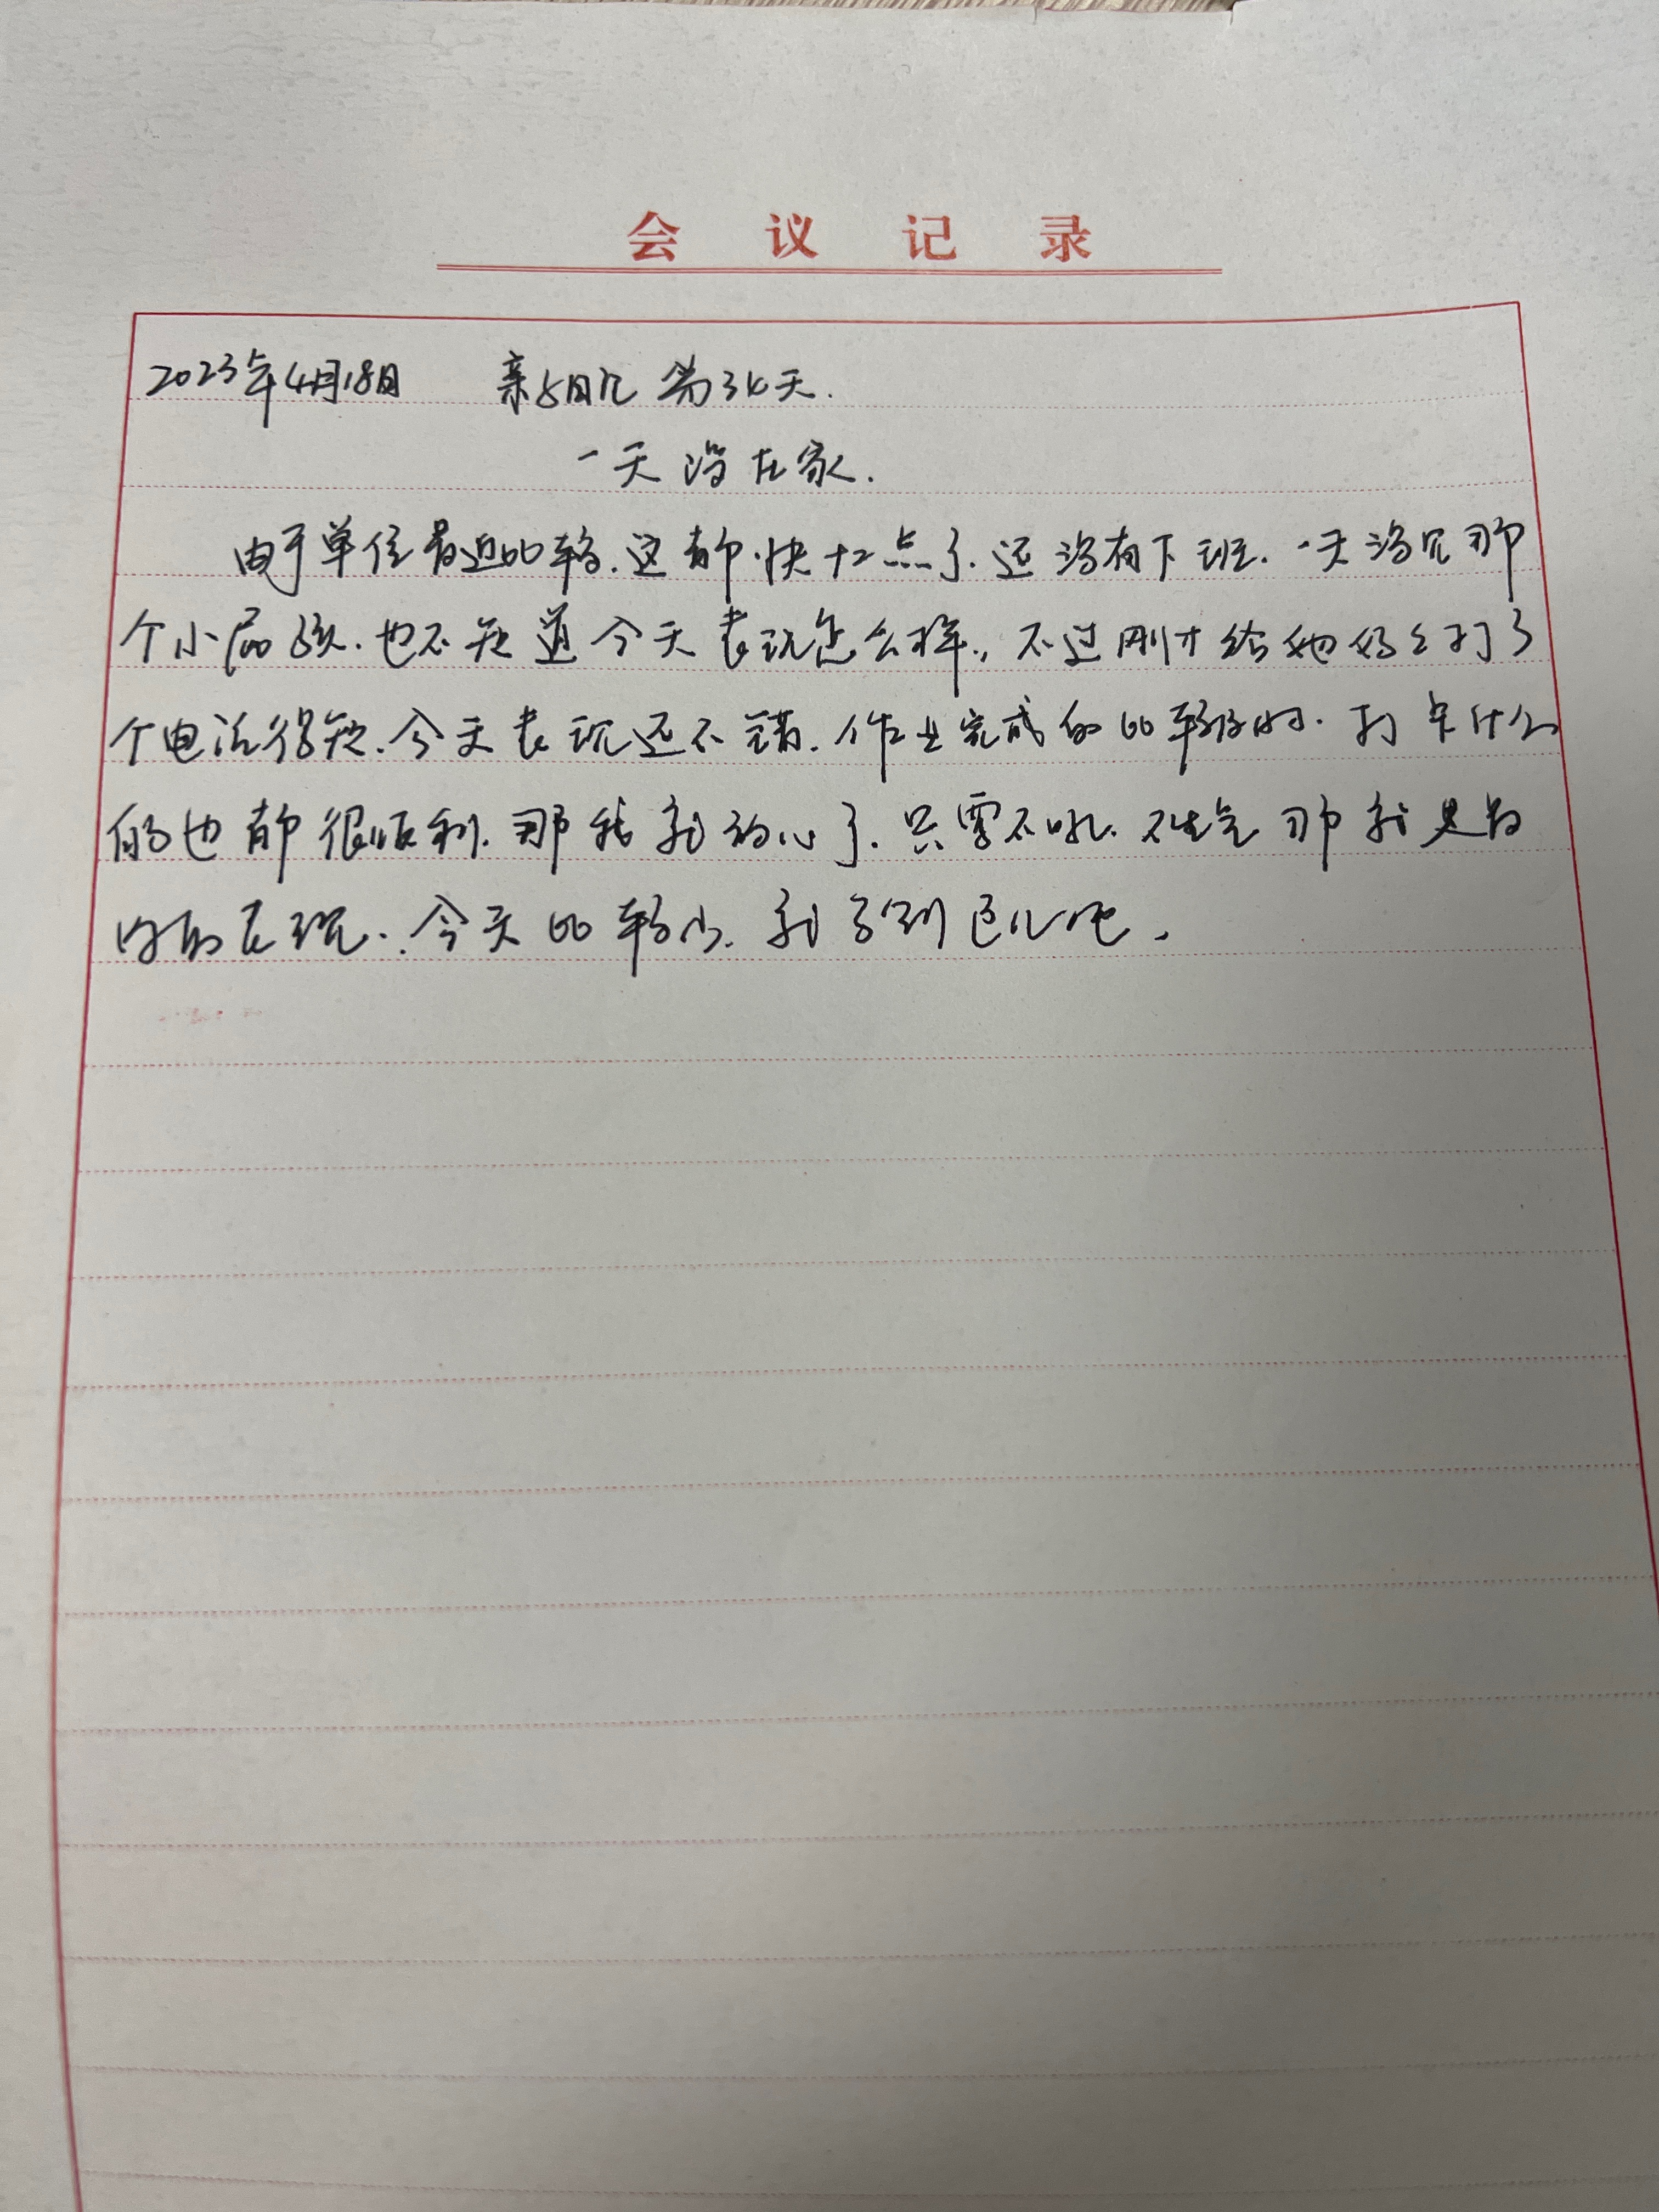 会议记录
2023年4月18日 亲子日记 第34天.
一天没在家.
由于单位最近比较.这都快十二点了.还没有下班.一天没见那
个小屁孩.也不知道今天表现怎么样.,不过刚才给她妈妈打了
个电话得知.今天表现还不错.作业完成的比较好的.打卡什么
的也都很顺利.那我就放心了.只要不吼.不生气那就是最
好的表现.今天比较少.就写到这儿吧.